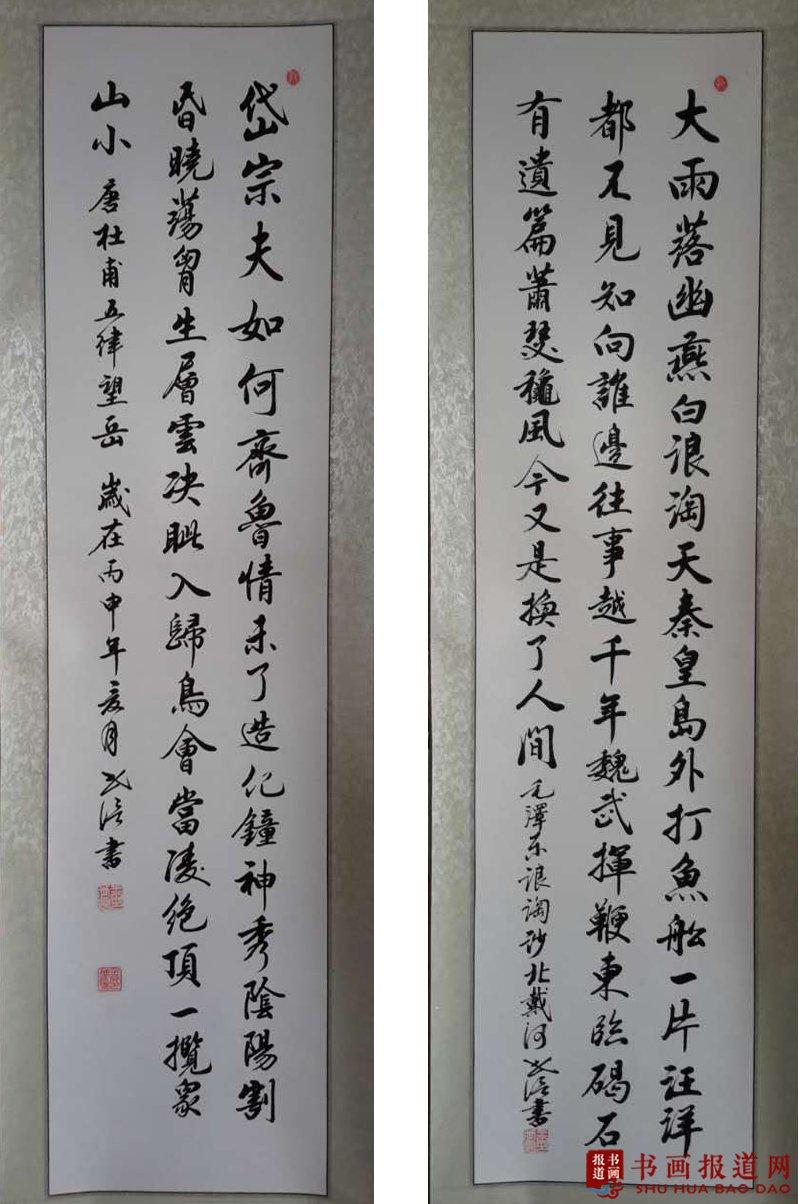 岱宗夫如何齊魯情未了造化鐘神秀陰陽割
昏曉蕩胷生層雲决眦入歸鳥會當凌绝頂一攬衆
山小 唐杜甫五律望岳 歲在丙申年亥月 書
大雨落幽燕白浪淘天秦皇島外打魚船一片汪洋
都不見知向誰邊往事越千年魏武揮鞭東临碣石
有遺篇蕭瑟穐風今又是換了人間 毛澤东浪淘沙北戴河 書
书画报道
书画报道网
SHU HUA BAO DAO